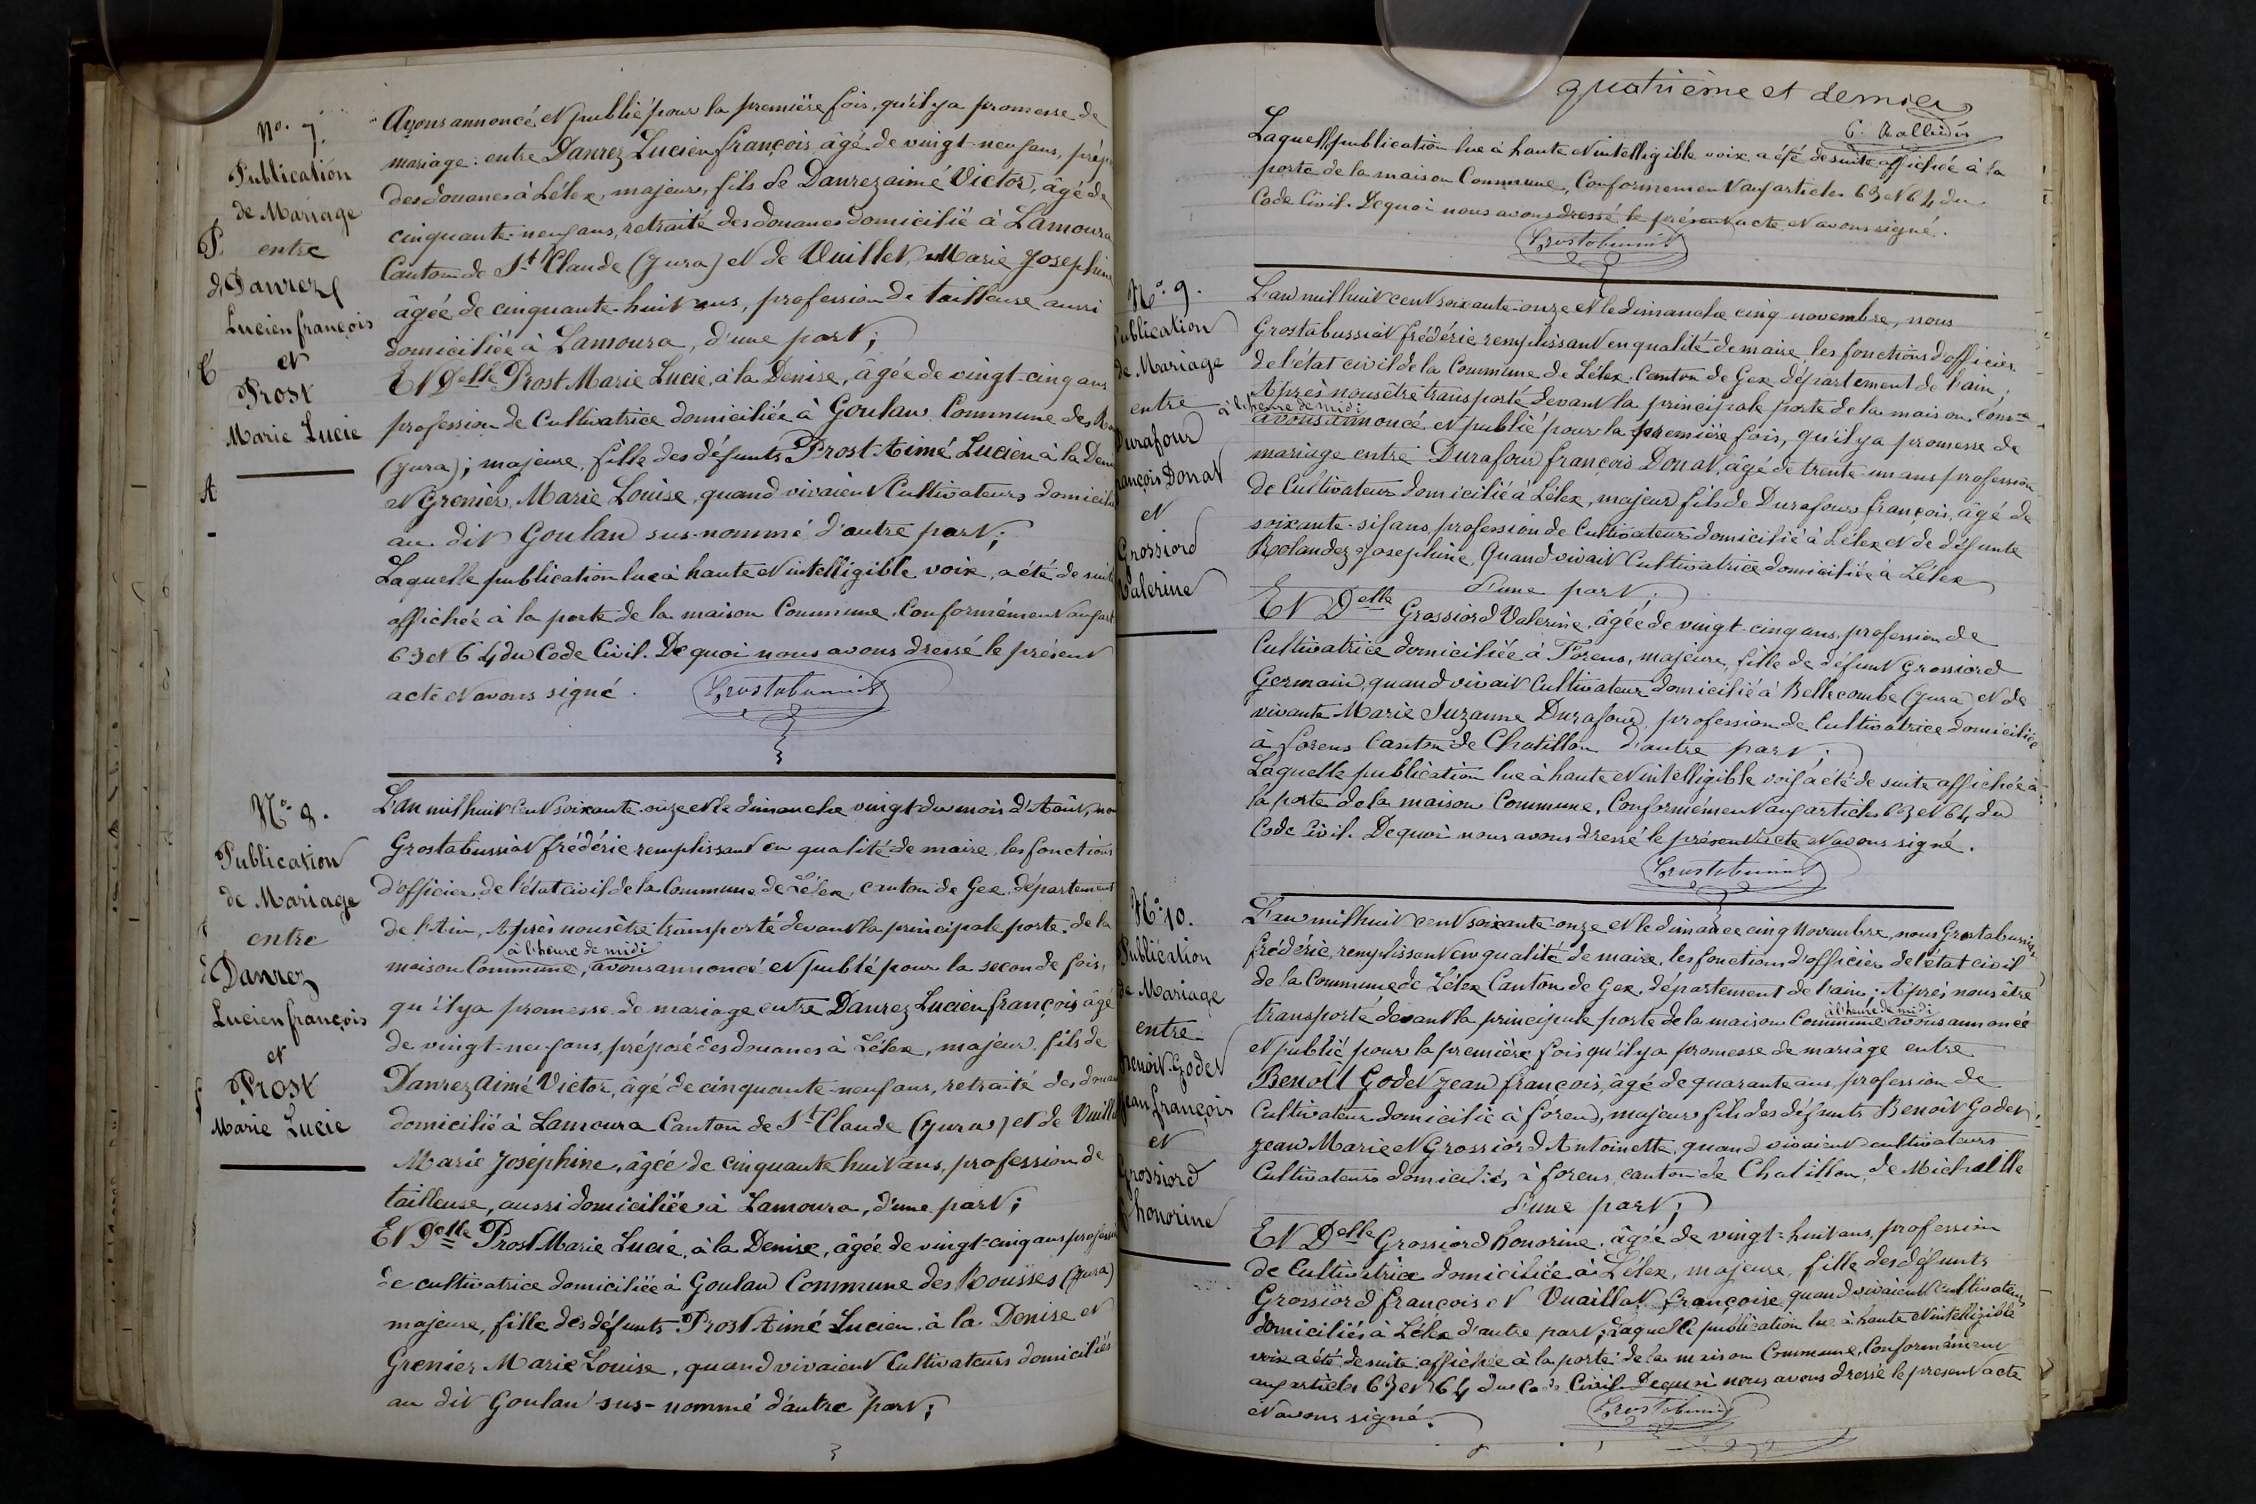 No. 7.
Publication
de Mariage
P. entre
de Danrez
Lucien françois
C et
Prost
Marie Lucie
A
Ayons annoncé et publié pour la première fois, qu'il y a promesse de
mariage: entre Danrez Lucien françois âgé de vingt-neuf ans, prép
des douanes à Lélex, majeur, fils de Danrez aimé Victor, âgé de
cinquante-neuf ans, retraité des douanes domicilié à Lamoura
Canton de St Claude (Jura) et de Vuillet, Marie Josephine
âgée de cinquante-huit ans, profession de tailleuse aussi
domiciliée à Lamoura, d'une part;
Et Delle Prost Marie Lucie, à la Denise, âgée de vingt-cinq ans
profession de Cultivatrice domiciliée à Goulau Commune des
(Jura); majeure, fille des défunts Prost Aimé Lucien à la Den
et Grenier, Marie Louise, quand vivaient Cultivateurs domicili
au dit Goulau sus-nommé d'autre part;
Laquelle publication lue à haute et intelligible voix, a été de suite
affichée à la porte de la maison Commune, Conformément aux art
63 et 64 du Code Civil. De quoi nous avons dressé le présent
acte et avons signé. Grostabussiat
No. 8.
Publication
de Mariage
entre
Danrez
Lucien françois
et
Prost
Marie Lucie
L'an mil huit cent soixante-onze et le dimanche vingt du mois d'Août, no
Grostabussiat frédéric remplissant en qualité de maire, les fonctions
d'officier de l'état civil de la Commune de Lélex, canton de Gex, département
de l'Ain, Après nous être transporté devant la principale porte de la
à l'heure de midi
maison Commune, avons annoncé et publé pour la seconde fois,
qu'il y a promesse de mariage entre Danrez Lucien françois âgé
de vingt-neuf ans, préposé des douanes à Lélex, majeur, fils de
Danrez Aimé Victor, âgé de cinquante-neuf ans, retraité des douan
domicilié à Lamoura Canton de St Claude (Jura) et de Vuill
Marie Joséphine, âgée de cinquante huit ans, profession de
tailleuse, aussi domiciliée à Lamoura, d'une part;
Et Delle Prost Marie Lucie, à la Denise, âgée de vingt-cinq ans profession
de cultivatrice domiciliée à Goulau Commune des Bousses (Jura)
majeure, fille des défunts Prost Aimé Lucien à la Denise et
Grenier Marie Louise, quand vivaient Cultivateurs domiciliés
au dit Goulau sus-nommé d'autre part;
quatrième et dernier
Laquelle publication lue à haute et intelligible voix a été de suite affichée à la
porte de la maison Commune, Conformément aux articles 63 et 64 du
Code Civil. De quoi nous avons dressé le présent acte et avons signé.
Grostabussiat
No. 9.
Publication
de Mariage
entre
Durafour
rançois Donat
et
Grossiord
Valérine
L'an mil huit cent soixante-onze et le dimanche cinq novembre, nous
Grostabussiat frédéric remplissant en qualité de maire, les fonctions d'officier
de l'état civil de la Commune de Lélex, Canton de Gex département de l'ain;
Après nous être transporté devant la principale porte de la maison Comne
à l'heure de midi
avons annoncé et publié pour la première fois, qu'il y a promesse de
mariage entre Durafour françois Donat, âgé de trente-un ans profession
de Cultivateur domicilié à Lélex, majeur fils de Durafour françois, âgé de
soixante-six ans, profession de Cultivateur domicilié à Lélex et de défunte
Rolandez Josephine, Quand vivait Cultivatrice domiciliée à Lélex
d'une part;
Et Delle Grossiord Valérine, âgée de vingt-cinq ans, profession de
Cultivatrice domiciliée à Forens, majeure, fille de défunt Grossiord
Germain, quand vivait Cultivateur domicilié à Bellecombe (Jura) et de
vivante Marie Suzanne Durafour, profession de Cultivatrice domiciliée
à forens Canton de Chatillon d'autre part;
Laquelle publication lue à haute et intelligible voix a été de suite affichée à
la porte de la maison Commune, Conformément aux articles 63 et 64 du
Code Civil. De quoi nous avons dressé le présent acte et avons signé.
Grostabussiat
No. 10.
Publication
de Mariage
entre
Benoit-Godet
Jean françois
et
Grossiord
honorine
L'an mil huit cent soixante-onze et le dimance cinq Novembre, nous Grostabussiat
frédéric, remplissant en qualité de maire, les fonctions d'officier de l'état civil
de la Commune de Lélex Canton de Gex, département de l'ain; Après nous être
à l'heure de midi
transporté devant la principale porte de la maison Commune avons annoncé
et publié pour la première fois qu'il y a promesse de mariage entre
Benoit Godet Jean françois, âgé de quarante ans, profession de
Cultivateur domicilié à forens, majeur fils des défunts Benoit Godet
Jean Marie et Grossiord Antoinette, quand vivaient cultivateurs
Cultivateurs domiciliés à forens, canton de Chatillon, de Michaille
d'une part;
Et Delle Grossiord honorine, âgée de vingt-huit ans, profession
de Cultivatrice domiciliée à Lélex, majeure, fille des défunts
Grossiord françois et Vuaillat françoise, quand vivaient cultivateurs
domiciliés à Lélex d'autre part; Laquelle publication lue à haute et intelligible
voix a été de suite affichée à la porte de la maison Commune, Conformément
aux articles 63 et 64 du Code Civil. De quoi nous avons dressé le présent acte
et avons signé. Grostabussiat